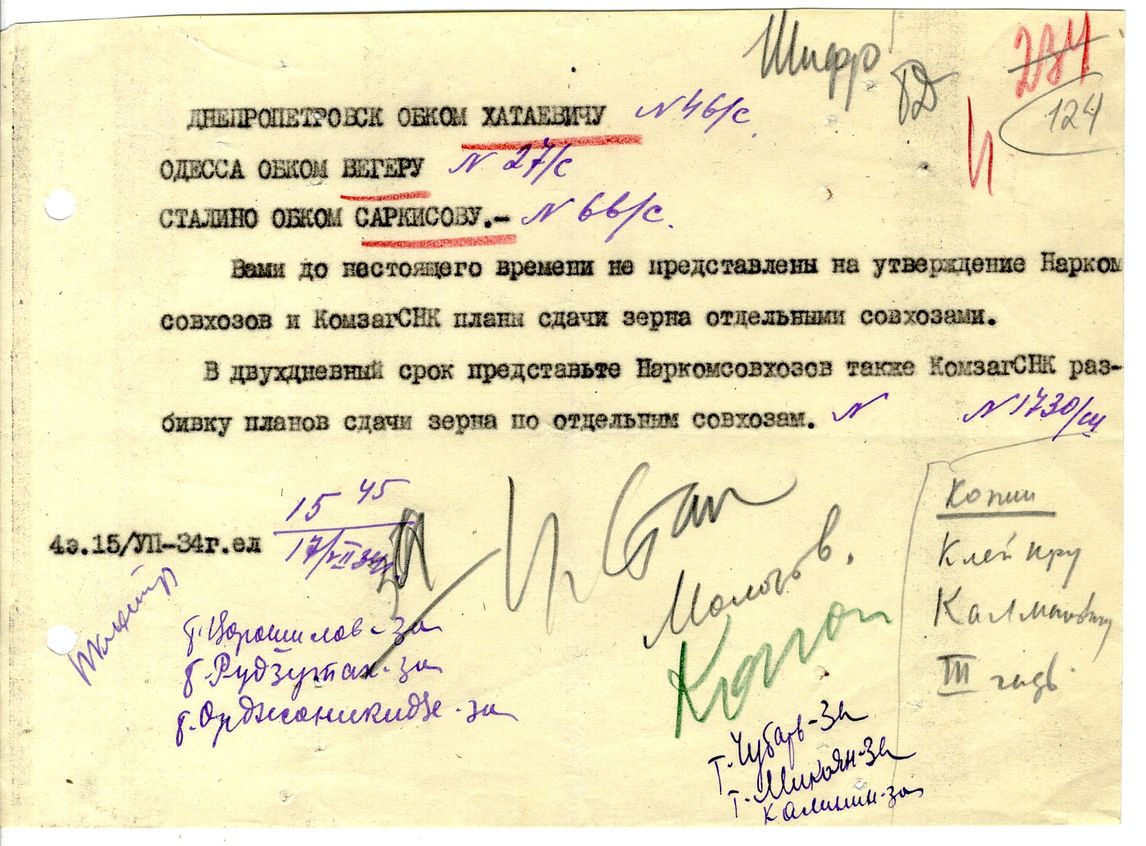 Шифр
284
124
ДНЕПРОПЕТРОВСК ОБКОМ ХАТАЕВИЧУ N 46/с.
ОДЕССА ОБКОМ ВЕГЕРУ N 27/с
СТАЛИНО ОБКОМ САРКИСОВУ.- N 66/с.
Вами до настоящего времени не представлены на утверждение Нарком
совхозов и КомзагСНК планы сдачи зерна отдельными совхозами.
В двухдневный срок представьте Наркомсовхозов также КомзагСНК раз-
бивку планов сдачи зерна по отдельным совхозам. N N 1730/ш
15 45
17/VII 34
4э.15/УП-34г.ел
И. Стал
Молотов.
Каган
Копии
Клейнеру
Калмановичу
III
т. Ворошилов-за
т. Рудзутак-за
т. Орджоникидзе-за
т. Чубарь-за
т. Микоян-за
Калинин-за